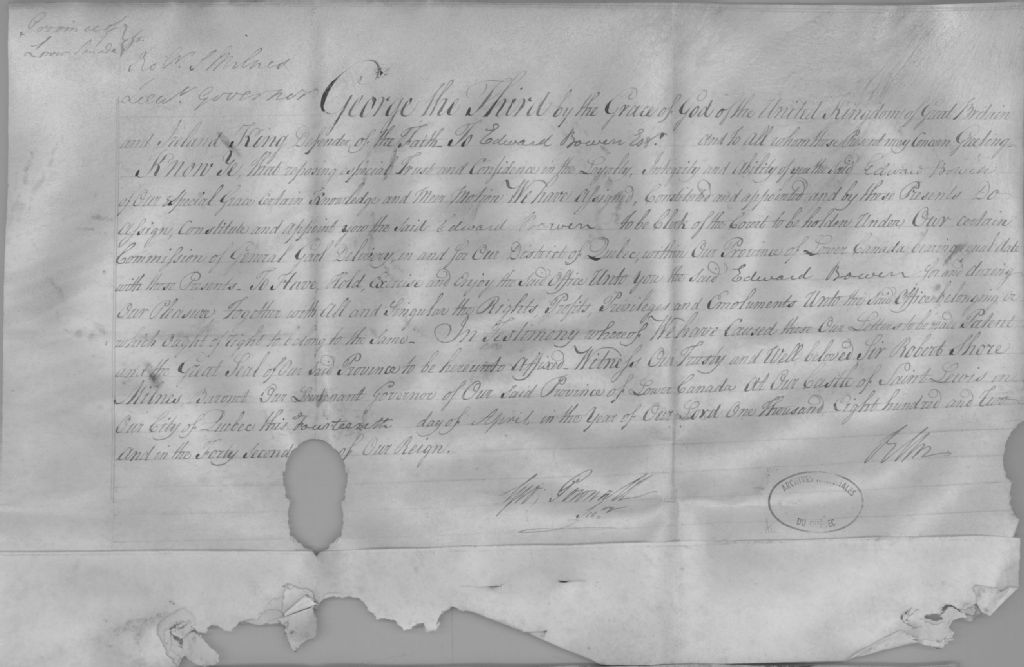 Province of
Lower Canada } ss
Rob. S Milnes
Lieut. Governor
George the Third by the Grace of God of the United Kingdom of Great Britain
and Ireland King Defender of the Faith To Edward Bowen Esqr. and to all whom these Presents may Concern Greeting
Know Ye, that reposing especial Trust and Confidence in the Loyalty, Integrity and Ability of you the said Edward Bowen
of Our especial Grace certain Knowledge and Mere Motion We have Assigned, Constituted and appointed and by these Presents Do
Assign, Constitute and appoint you the said Edward Bowen to be Clerk of the Court to be holden Under Our certain
Commission of General Gaol Delivery, in and for Our District of Quebec, within Our Province of Lower Canada, bearing equal date
with these Presents. To Have, Hold, Exercise and enjoy the said Office Unto you the said Edward Bowen for and during
Our Pleasure, Together with All and Singular the Rights Profits Privileges and Emoluments Unto the said Office belonging or
which ought of right to belong to the same. In Testimony whereof We have Caused these Our Letters to be made Patent
and the Great Seal of Our said Province to be hereunto Affixed Witness Our Trusty and Well beloved Sir Robert Shore
Milnes Baronet Our Lieutenant Governor of Our said Province of Lower Canada At Our Castle of Saint Lewis in
Our City of Quebec this fourteenth day of April, in the Year of Our Lord One Thousand, Eight hundred and two
And in the Forty Second of Our Reign.
RSM
Geo. Pownall
Secy.
ARCHIVES NATIONALES
DU QUÉBEC